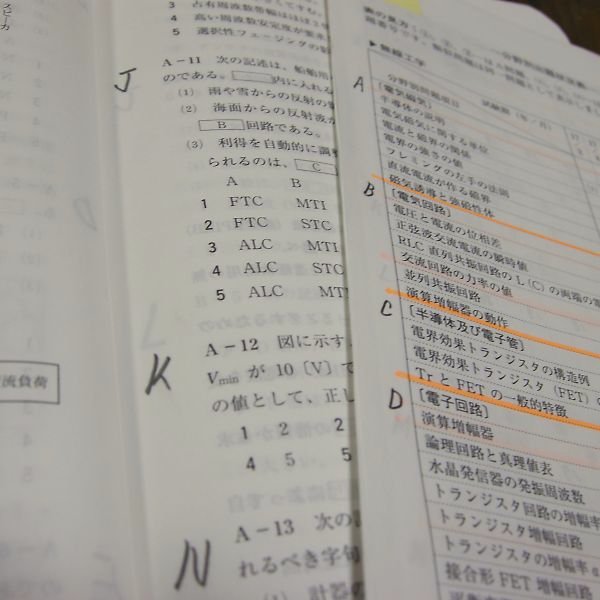 スピーカ
流負荷
3 占有周波数帯幅はほぼ2
4 高い周波数安定度が要
5 選択性フェージングの
J
A－11 次の記述は，船舶用
のである。 内に入れる
(1) 雨や雪からの反射の
(2) 海面からの反射波が
B 回路である。
(3) 利得を自動的に調整
られるのは， C
A B
1 FTC MTI
2 FTC STC
3 ALC MTI
4 ALC STC
5 ALC MTI
K
A－12 図に示す
Vmin が 10〔V〕で
の値として，正し
1 2 2
4 5 5
N
A－13 次の
れるべき字句
(1) 計器の
▶無線工学
分野別問題項目 試験期（年／月）
A
〔電気磁気〕
半導体の説明
電気磁気に関する単位
電流と磁界の関係
電界の強さの値
フレミングの左手の法則
直流電流が作る磁界
磁気誘導と強磁性体
B
〔電気回路〕
電圧と電流の位相差
正弦波交流電流の瞬時値
RLC 直列共振回路の L (C) の両端の電
交流回路の力率の値
並列共振回路
演算増幅器の動作
C
〔半導体及び電子管〕
電界効果トランジスタの構造例
電界効果トランジスタ (FET) の
Tr と FET の一般的特徴
D
〔電子回路〕
演算増幅器
論理回路と真理値表
水晶発信器の発振周波数
トランジスタ回路の増幅率
トランジスタ増幅回路
トランジスタの増幅率 α
接合形 FET 増幅回路